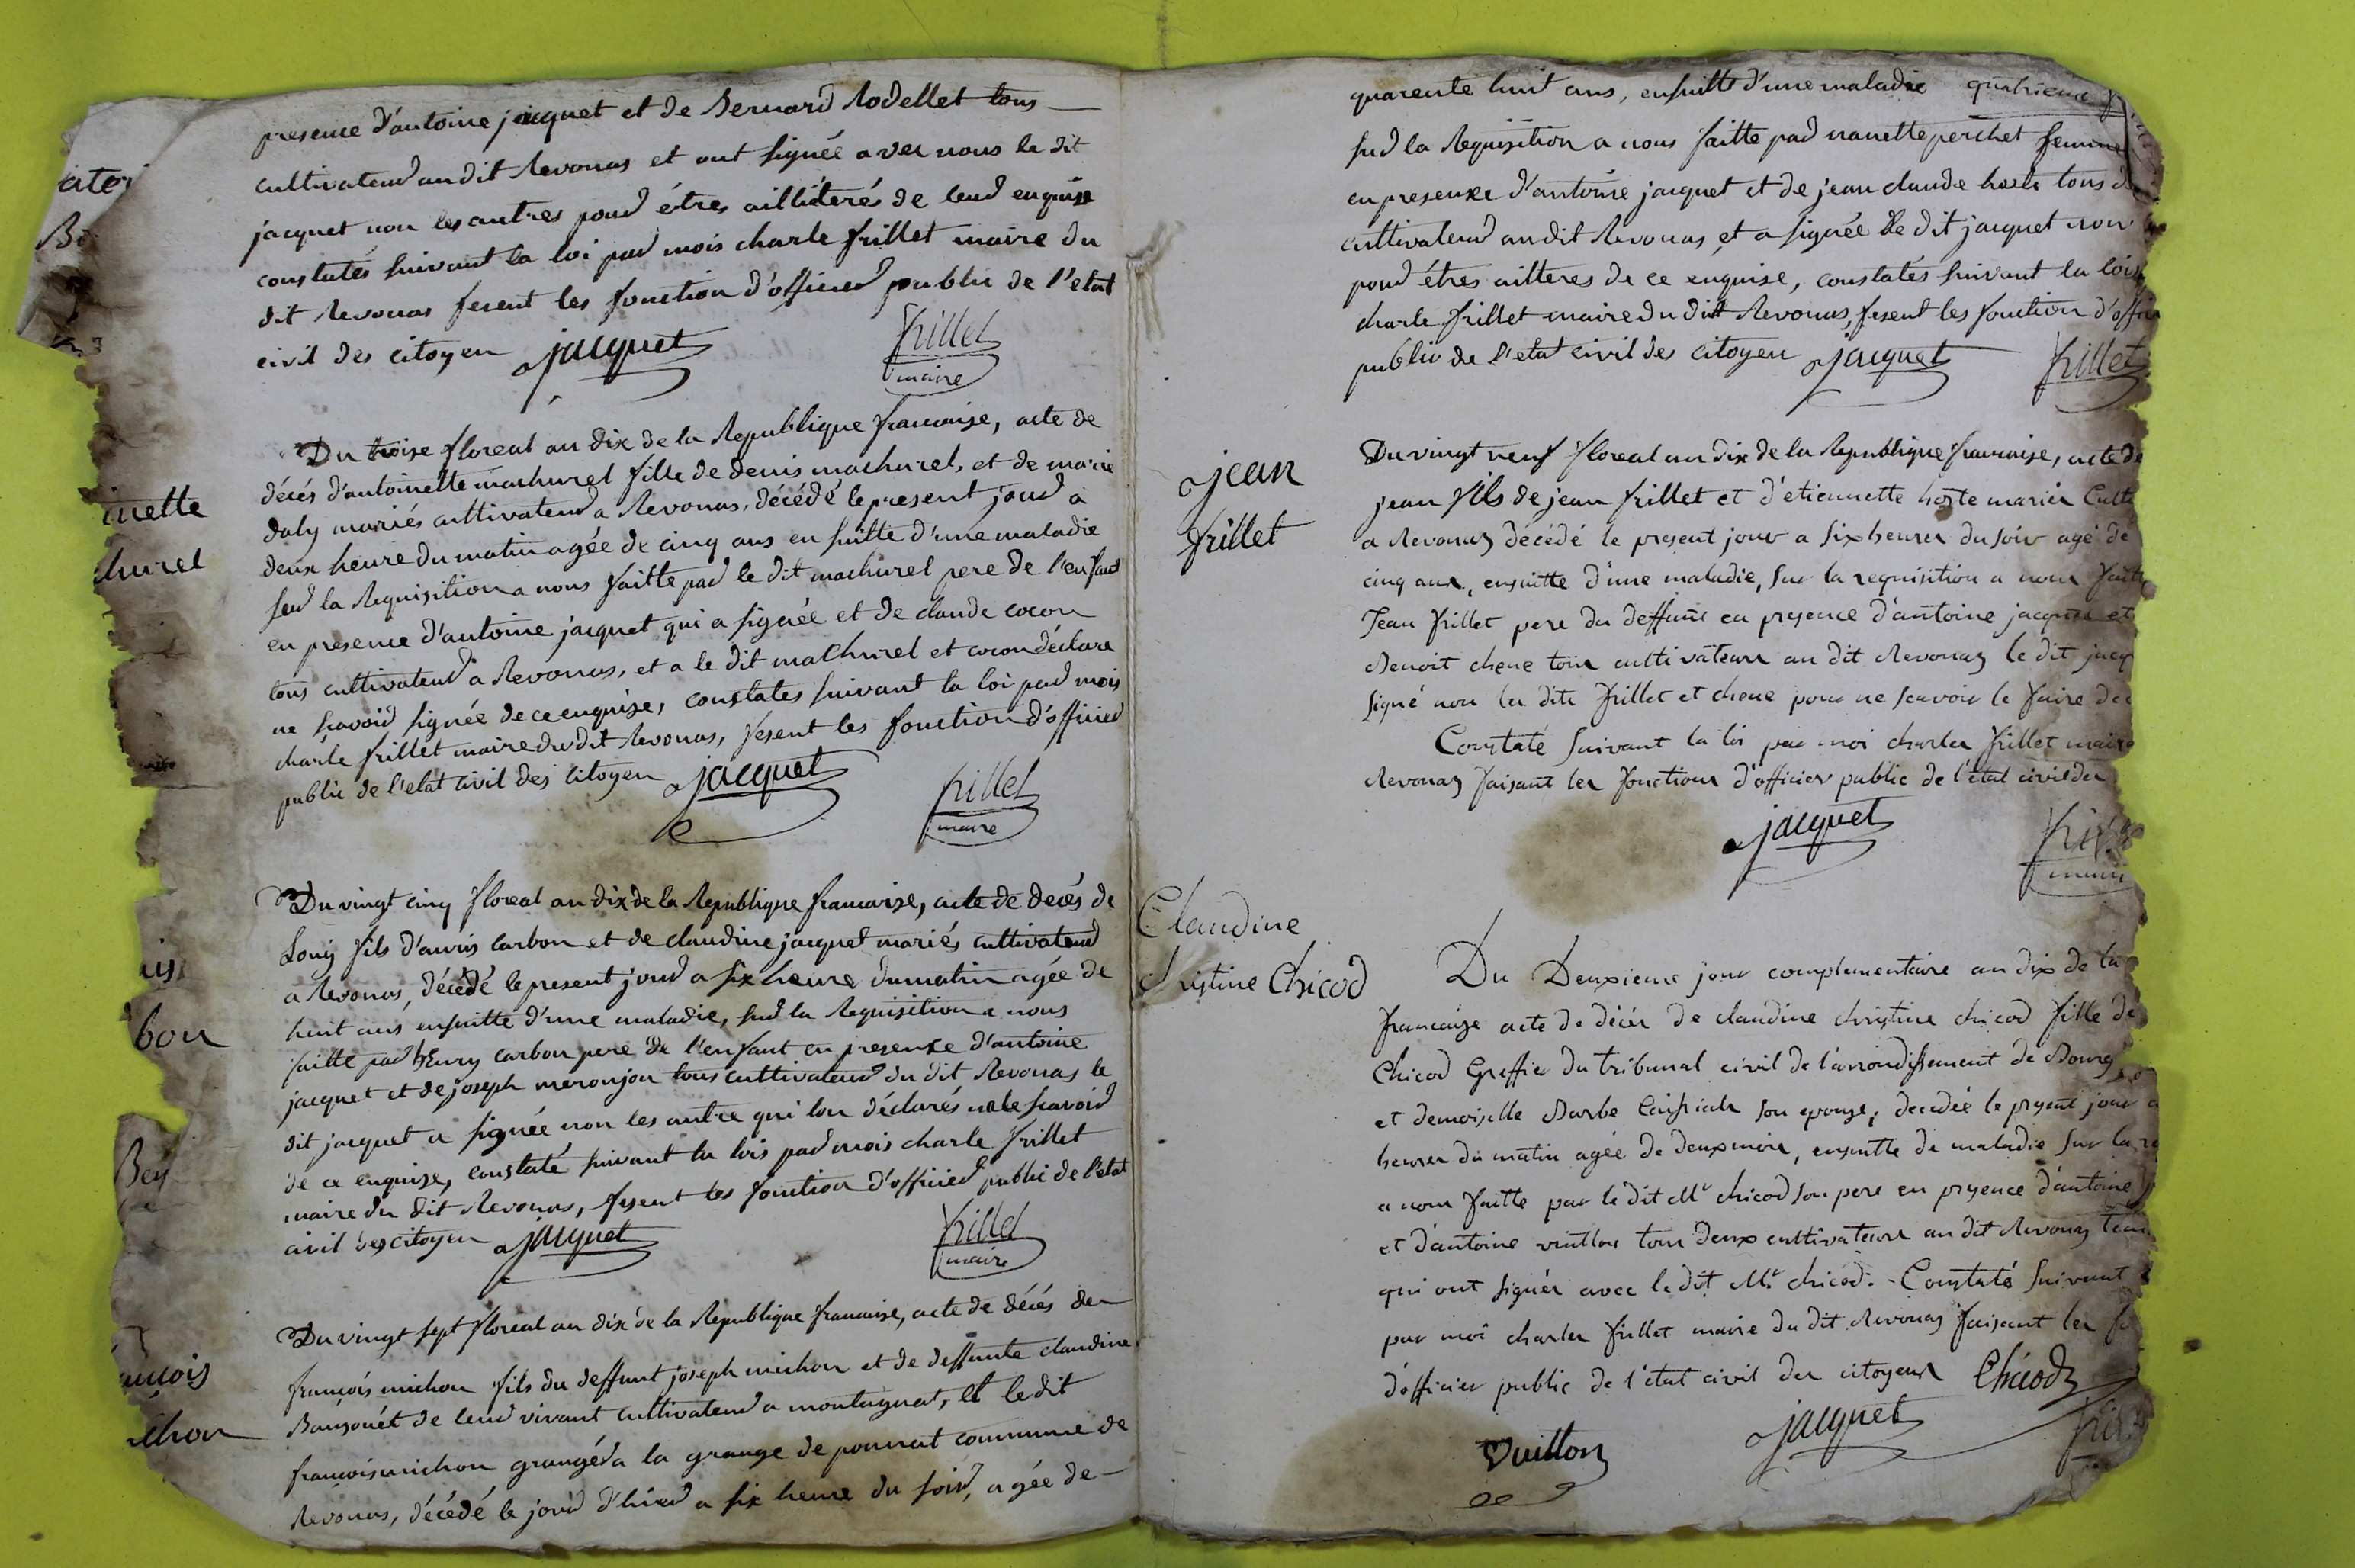 presence d'antoine jacquet et de Bernard Rodellet tous
cultivateur audit Revonas et ont signée avec nous le dit
jacquet non les autres pour étres aillétérés de leur enquise
constatés suivant la loi par mois charle frillet maire du
dit Revonas fesent les fonction d'officier public de l'etat
civil des citoyen jacquet
frillet
maire
inette
hurel
Du troise floreal an dix de la Republique francaise, acte de
décés d'antoinette machurel fille de denis machurel, et de marie
daly mariés cultivateur a Revonas, décédé le present jour a
deux heure du matin agée de cinq ans en suitte d'une maladie
sur la Requisition a nous faitte par le dit machurel pere de l'enfant
en presence d'antoine jacquet qui a signée et de claude cocon
tous cultivateur a Revonas, et a le dit machurel et cocon déclare
ne scavoir signée de ce enquise, constates suivant la loi par mois
charle frillet maire du dit Revonas, fesent les fonction d'officier
public de l'etat civil des citoyen jacquet
frillet
maire
bon
Du vingt cinq floreal an dix de la Republique francaise, acte de decés de
Louis fils d'anris carbon et de claudine jacquet mariés cultivateur
a Revonas, décédé le present jour a six heure du matin agée de
huit ans ensuitte d'une maladie, sur la Requisition a nous
faitte par henry carbon pere de l'enfant en presence d'antoine
jacquet et de joseph meronjon tous cultivateur du dit Revonas le
dit jacquet a signée non les autre qui lon déclarés ne le scavoir
de ce enquise, constaté suivant la lois par mois charle frillet
maire du dit Revonas, fesent les fonction d'officier public de l'etat
civil des citoyen jacquet
frillet
maire
ncois
ichon
Du vingt sept floreal an dix de la Republique francaise, acte de décés de
francois michon fils du deffunt joseph michon et de deffunte claudine
de leur vivant cultivateur a montagnat, et le dit
francois michon grangér a la grange de pommat commune de
Revonas, décédé le jour d'hier a six heure du soir, agée de
quarente huit ans, ensuitte d'une maladie
sur la Requisition a nous faitte par nanette perchet femme
en presence d'antoine jacquet et de jean claude hoste tous
cultivateur audit Revonas et a signée le dit jacquet non
pour étres aitteres de ce enquise, constatés suivant la lois
charle frillet maire du dit Revonas, fesent les fonction d'offi
public de l'etat civil des citoyen jacquet
frillet
jean
frillet
Du vingt neuf floreal an dix de la Republique francaise, acte de
jean fils de jean frillet et d'etiennette hoste mariés Culti
a Revonas décédé le present jour a six heures du soir agé de
cinq ans, ensuitte d'une maladie, sur la requisition a nous faite
Jean frillet pere du deffunt en presence d'antoine jacquet et
Benoit chene tous cultivateurs au dit Revonas le dit jacq
signé non les dits frillet et chene pour ne scavoir le faire de
Constaté suivant la loi par moi charles frillet maire
Revonas faisant les fonctions d'officier public de l'etat civil des
jacquet
Claudine
Christine Chicod
Du Deuxieme jour complementaire an dix de la
francaise acte de décés de claudine christine chicod fille de
Chicod Greffier du tribunal civil de l'arrondissement de Bourg
et demoiselle Barbe son epouse, decedée le present jour a
heures du matin agée de deux mois, ensuitte de maladie sur la re
a nous faitte par le dit Mr chicod son pere en presence d'antoine
et d'antoine vuitton tous deux cultivateurs au dit Revonas
qui ont signés avec le dit Mr chicod. Constaté suivant
par moi charles frillet maire du dit Revonas faisant les fo
d'officier public de l'état civil des citoyens Chicod
Vuitton
jacquet